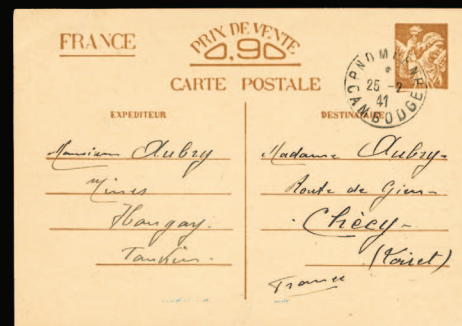 FRANCE
PRIX DE VENTE
0,90
CARTE POSTALE
PNOMPENH
25 -2
41
CAMBODGE
EXPÉDITEUR
DESTINATAIRE
Monsieur Aubry
Mines
Hongay.
Tonkin.
Madame Aubry
Route de Gien
Chécy
(Loiret)
France